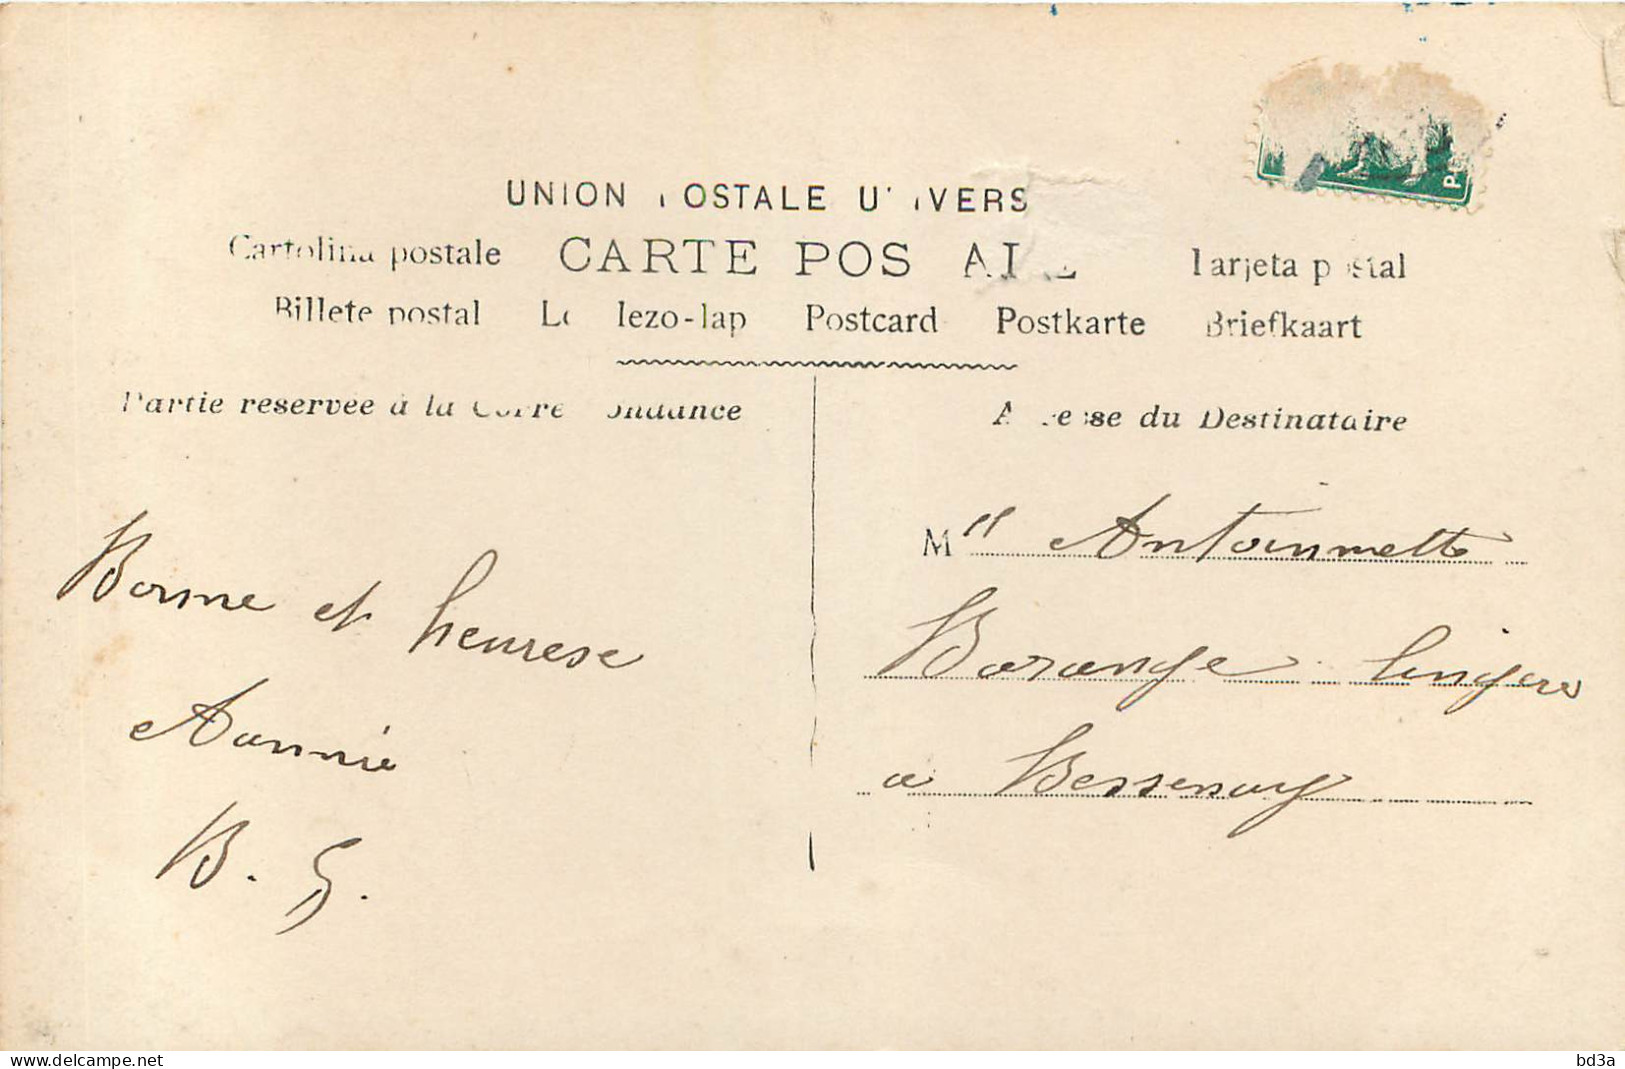 UNION POSTALE UNIVERS
Cartolina postale CARTE POSTALE Tarjeta postal
Billete postal Levelezo-lap Postcard Postkarte Briefkaart
Partie reservee à la Correspondance
Adresse du Destinataire
Bonne et heurese
Aannié
B. G.
Mll Antoinnette
Barange lingere
a Bessenay
delcampe.net
bd3a